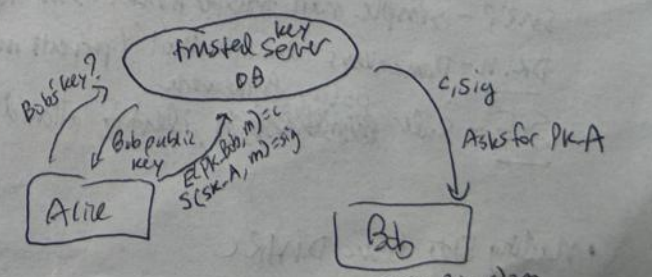 trusted key server
DB
Bobs key?
Bob public
key
E(PK-Bob, m)=c
S(SK-A, m)=sig
c, sig
Asks for PK-A
Alice
Bob